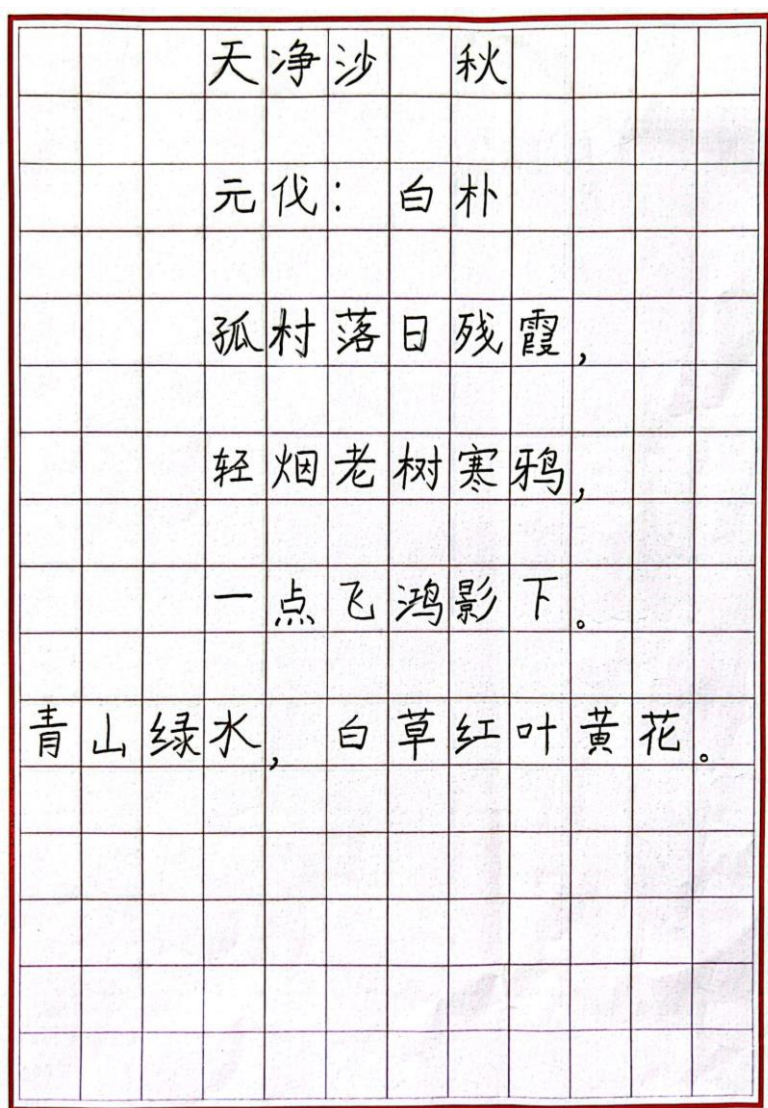 天净沙 秋
元伐：白朴
孤村落日残霞，
轻烟老树寒鸦，
一点飞鸿影下。
青山绿水，白草红叶黄花。